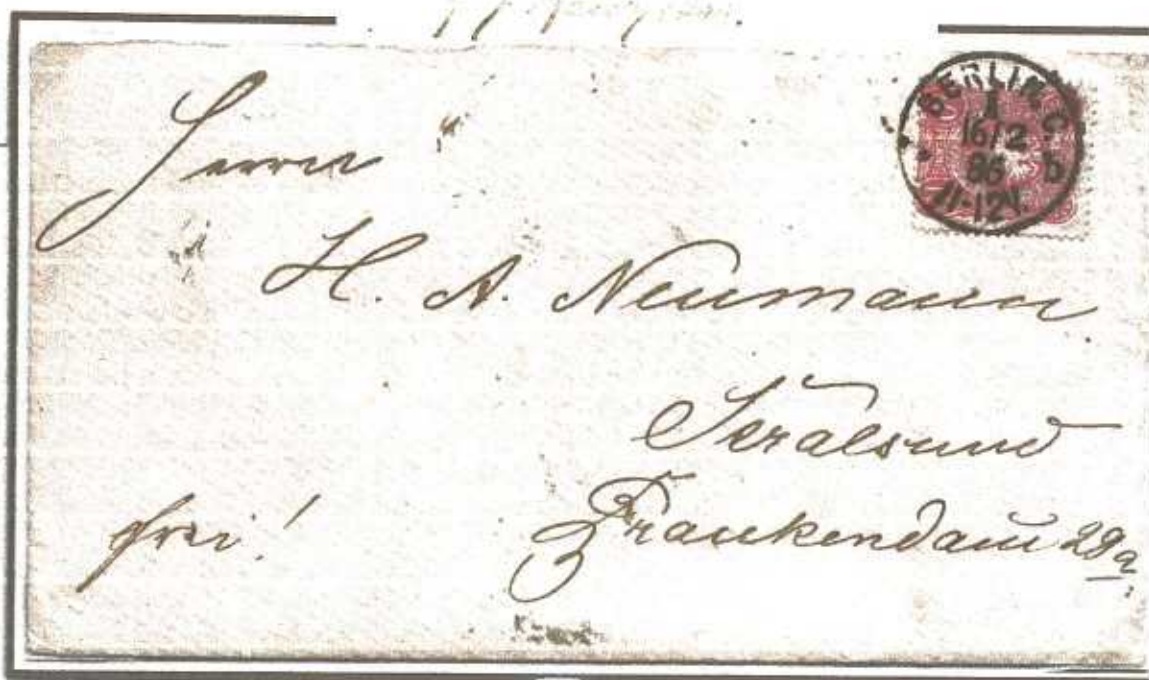 BERLIN, C.
1
16/2
86 b
11-12V.
Herrn
H. A. Neumann
Stralsund
Frankendam 29a
frei!